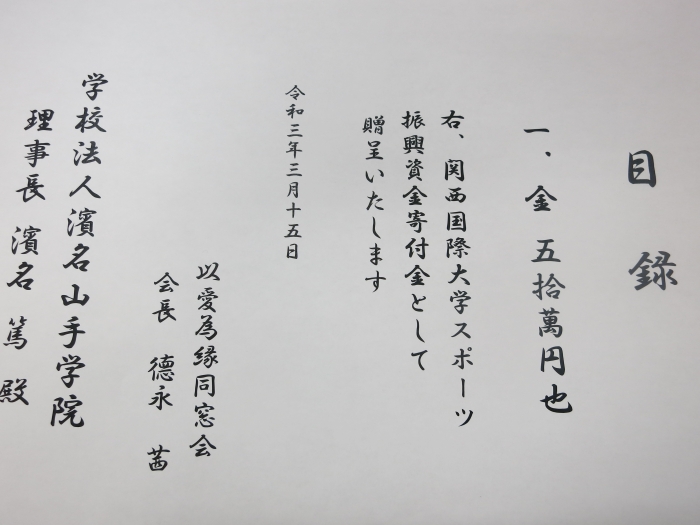 目録
一、金 五拾萬円也
右、関西国際大学スポーツ
振興資金寄付金として
贈呈いたします
令和三年三月十五日
以愛為縁同窓会
会長 德永 茜
学校法人濱名山手学院
理事長 濱名 篤 殿